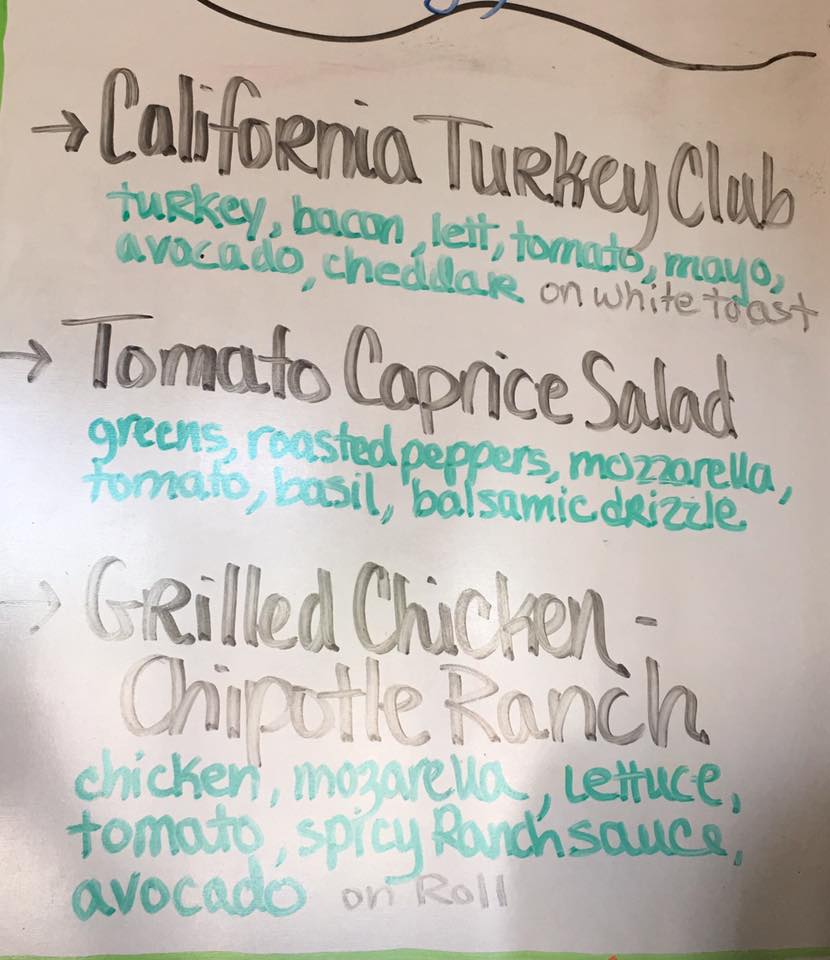 → California Turkey Club
turkey, bacon, lett, tomato, mayo,
avocado, cheddar on white toast
→ Tomato Caprice Salad
greens, roasted peppers, mozzarella,
tomato, basil, balsamic drizzle
→ Grilled Chicken -
Chipotle Ranch
chicken, mozarella, lettuce,
tomato, spicy Ranch sauce,
avocado on Roll